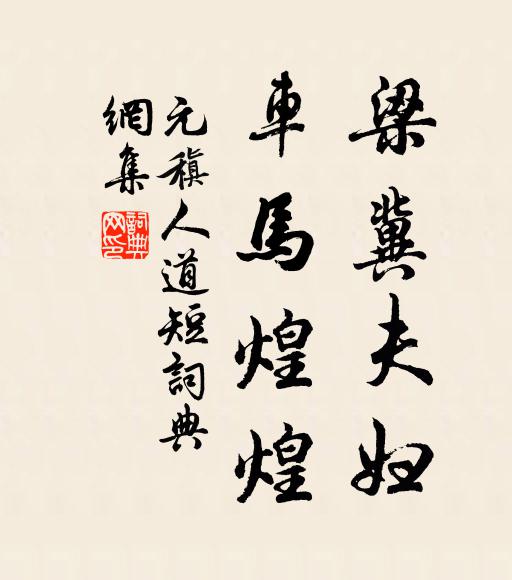 梁冀夫妇
車馬煌煌
元稹人道短詞典
網集
詞典
网印